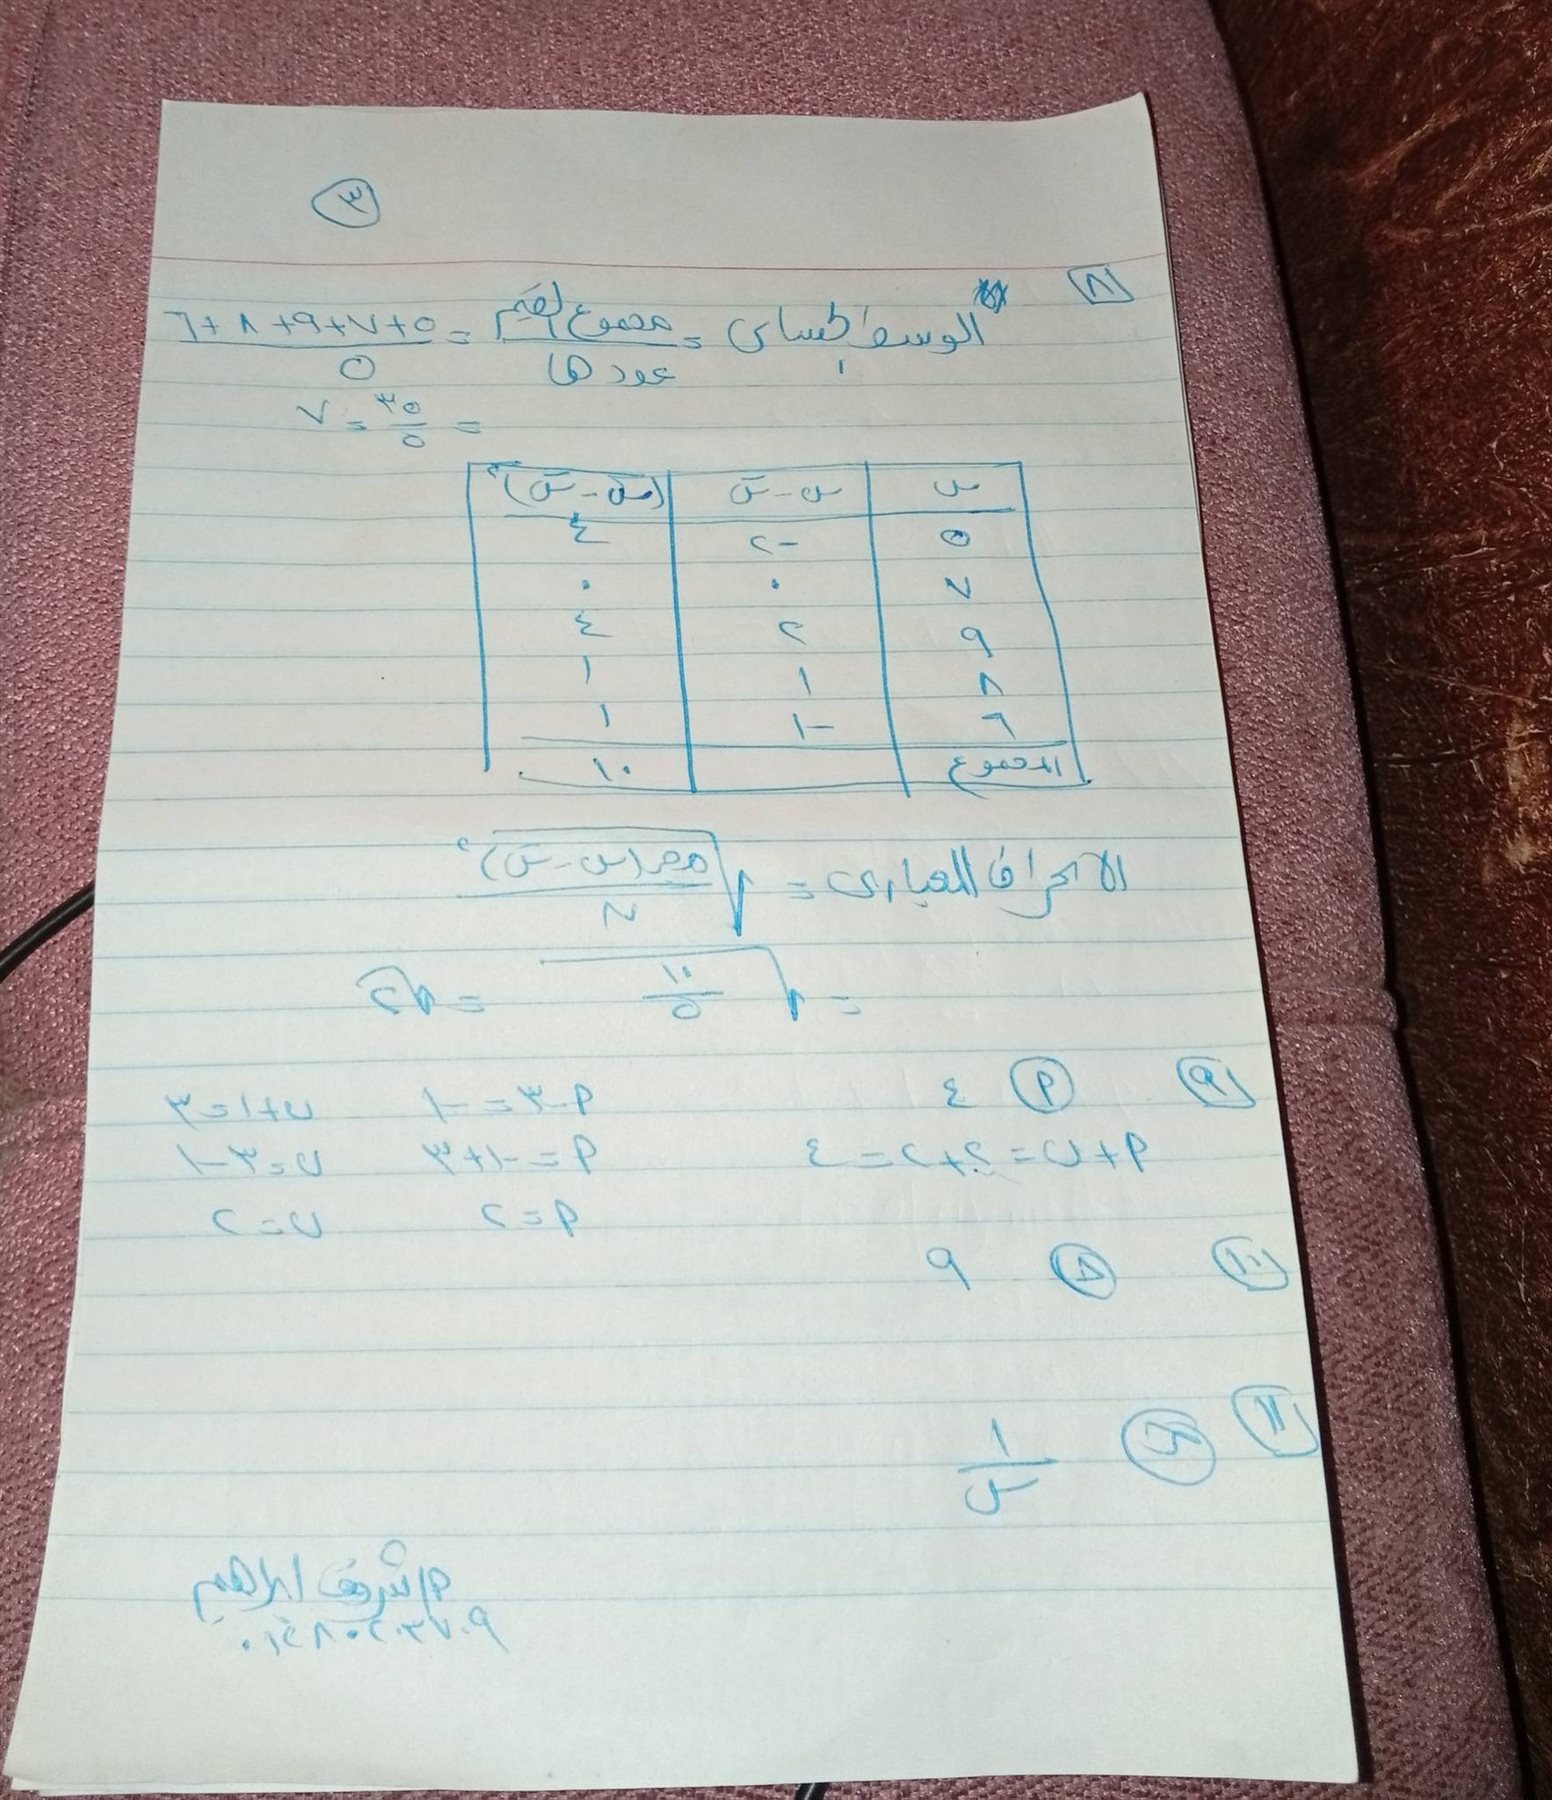 ٣
٨
الوسط الحسابى = مجموع القيم / عددها = ٥+٧+٩+٨+٦ / ٥
= ٣٥ / ٥ = ٧
س | س - س̄ | (س - س̄)²
٥ | -٢ | ٤
٧ | ٠ | ٠
٩ | ٢ | ٤
٨ | ١ | ١
٦ | -١ | ١
المجموع | ١٠
الانحراف المعيارى = √(مجـ (س - س̄)² / ن)
= √(١٠ / ٥) = √٢
٩ أ ٤ أ-٣=-١ ب+١=٣
أ+ب=٢+٢=٤ أ=-١+٣ ب=٣-١
أ=٢ ب=٢
١٠ ٩
١١ ١ / س
أ/شريف ابراهيم
٠١٤٨٠٢٠٣٧٠٩